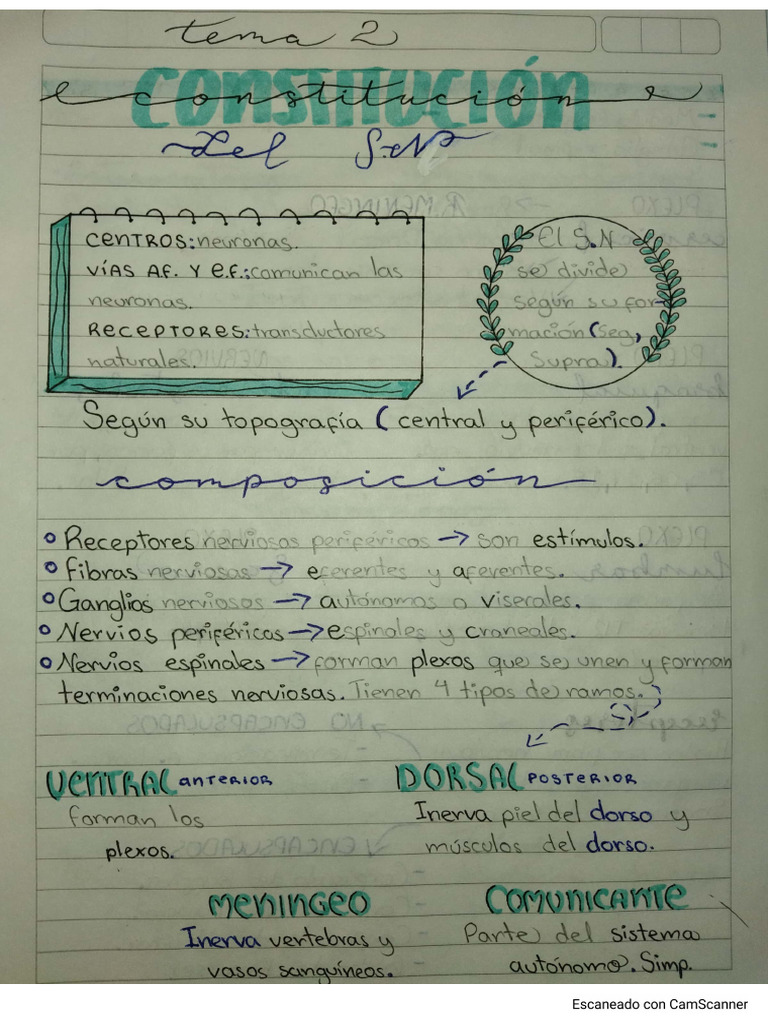 tema 2
constitución
CONSTITUCIÓN
del S.N.P
CENTROS: neuronas.
VÍAS Af. Y e.f.: comunican las
neuronas.
RECEPTORES: transductores
naturales.
El S.N
se divide
según su for-
mación (seg,
Supra).
Según su topografía (central y periférico).
composición
Receptores nerviosos periféricos → son estímulos.
Fibras nerviosas → eferentes y aferentes.
Ganglios nerviosos → autónomos o viserales.
Nervios periféricos → espinales y craneales.
Nervios espinales → forman plexos que se unen y forman
terminaciones nerviosas. Tienen 4 tipos de ramos.
VENTRAL ANTERIOR
forman los
plexos.
DORSAL POSTERIOR
Inerva piel del dorso y
músculos del dorso.
MENINGEO
Inerva vertebras y
vasos sanguíneos.
COMUNICANTE
Parte del sistema
autónomo. Simp.
Escaneado con CamScanner